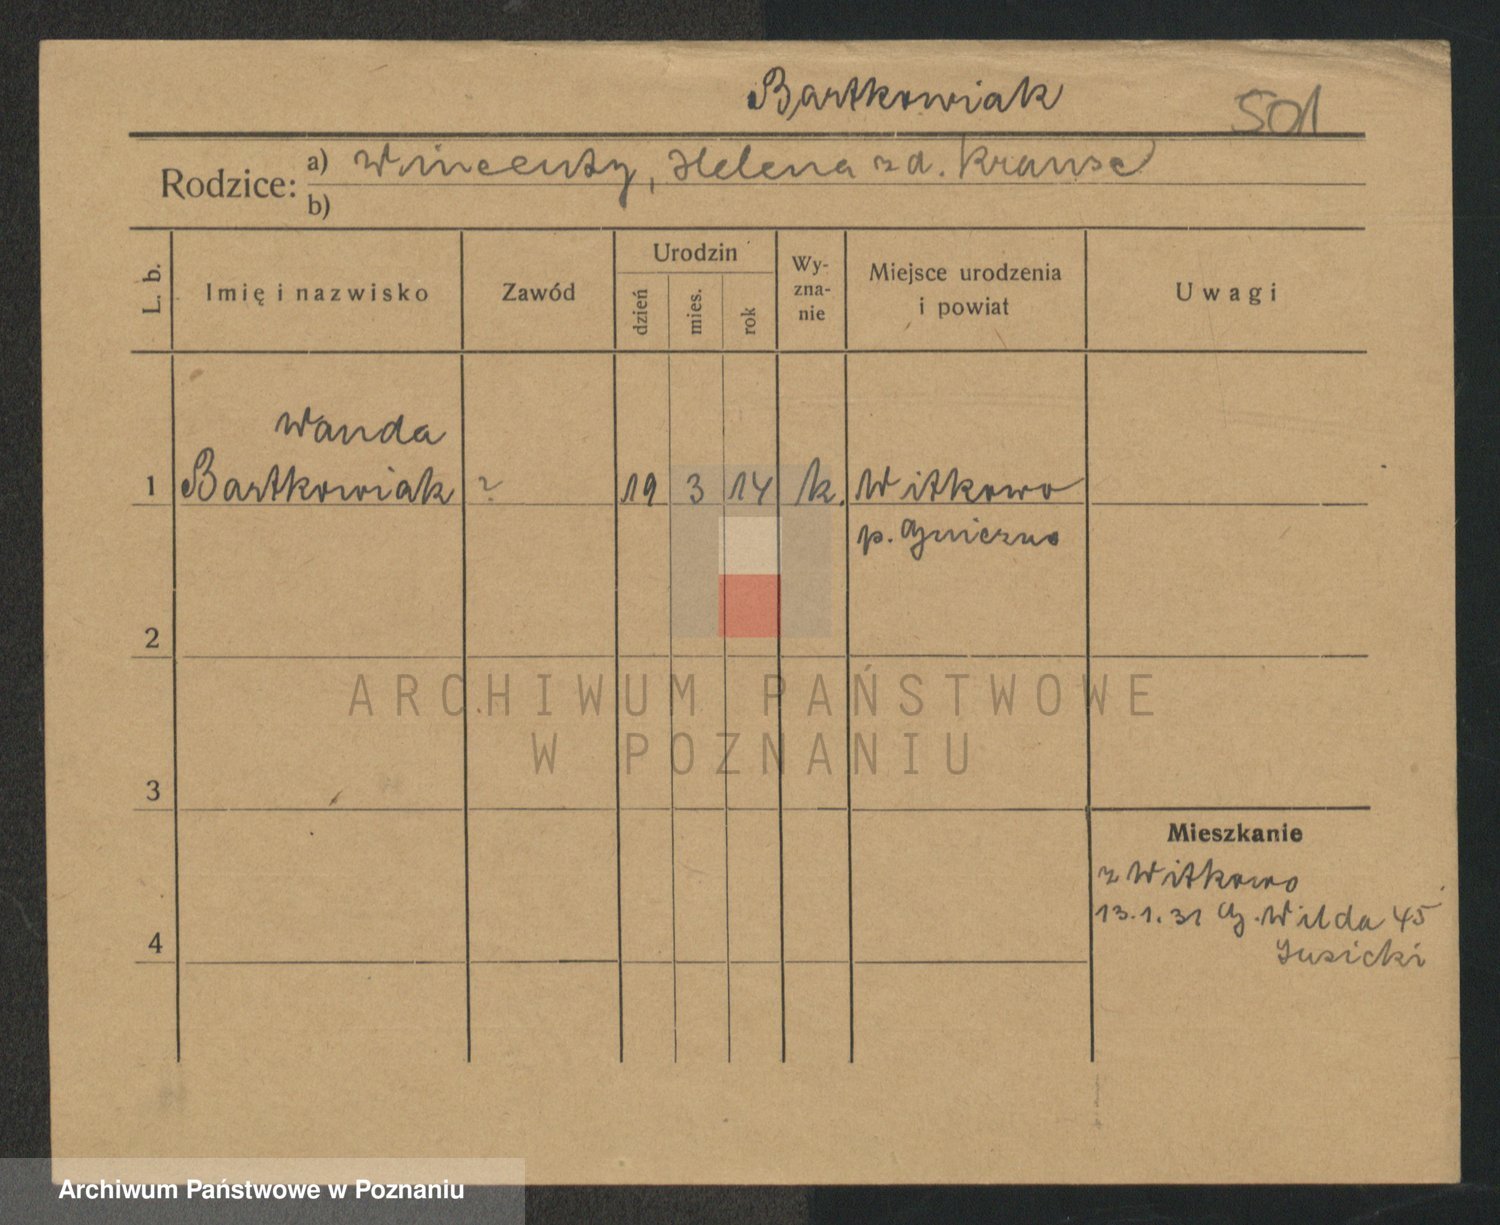 Bartkowiak
501
Rodzice: a) Wincenty, Helena zd. Krause
b)
L. b.
Imię i nazwisko
Zawód
Urodzin
dzień
mies.
rok
Wy-
zna-
nie
Miejsce urodzenia
i powiat
Uwagi
Wanda
1 Bartkowiak ? 19 3 14 k. Witkowo
p. Gniezno
2
ARCHIWUM PAŃSTWOWE
W POZNANIU
3
Mieszkanie
z Witkowo
13.1.31 G. Wilda 45
4
Archiwum Państwowe w Poznaniu